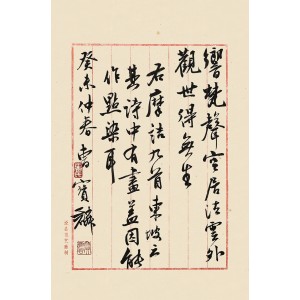 響梵聲空居法雲外
觀世得無生
右摩詰九首東坡云
其詩中有畫蓋因能
作點染耳
癸未仲春曹寶麟